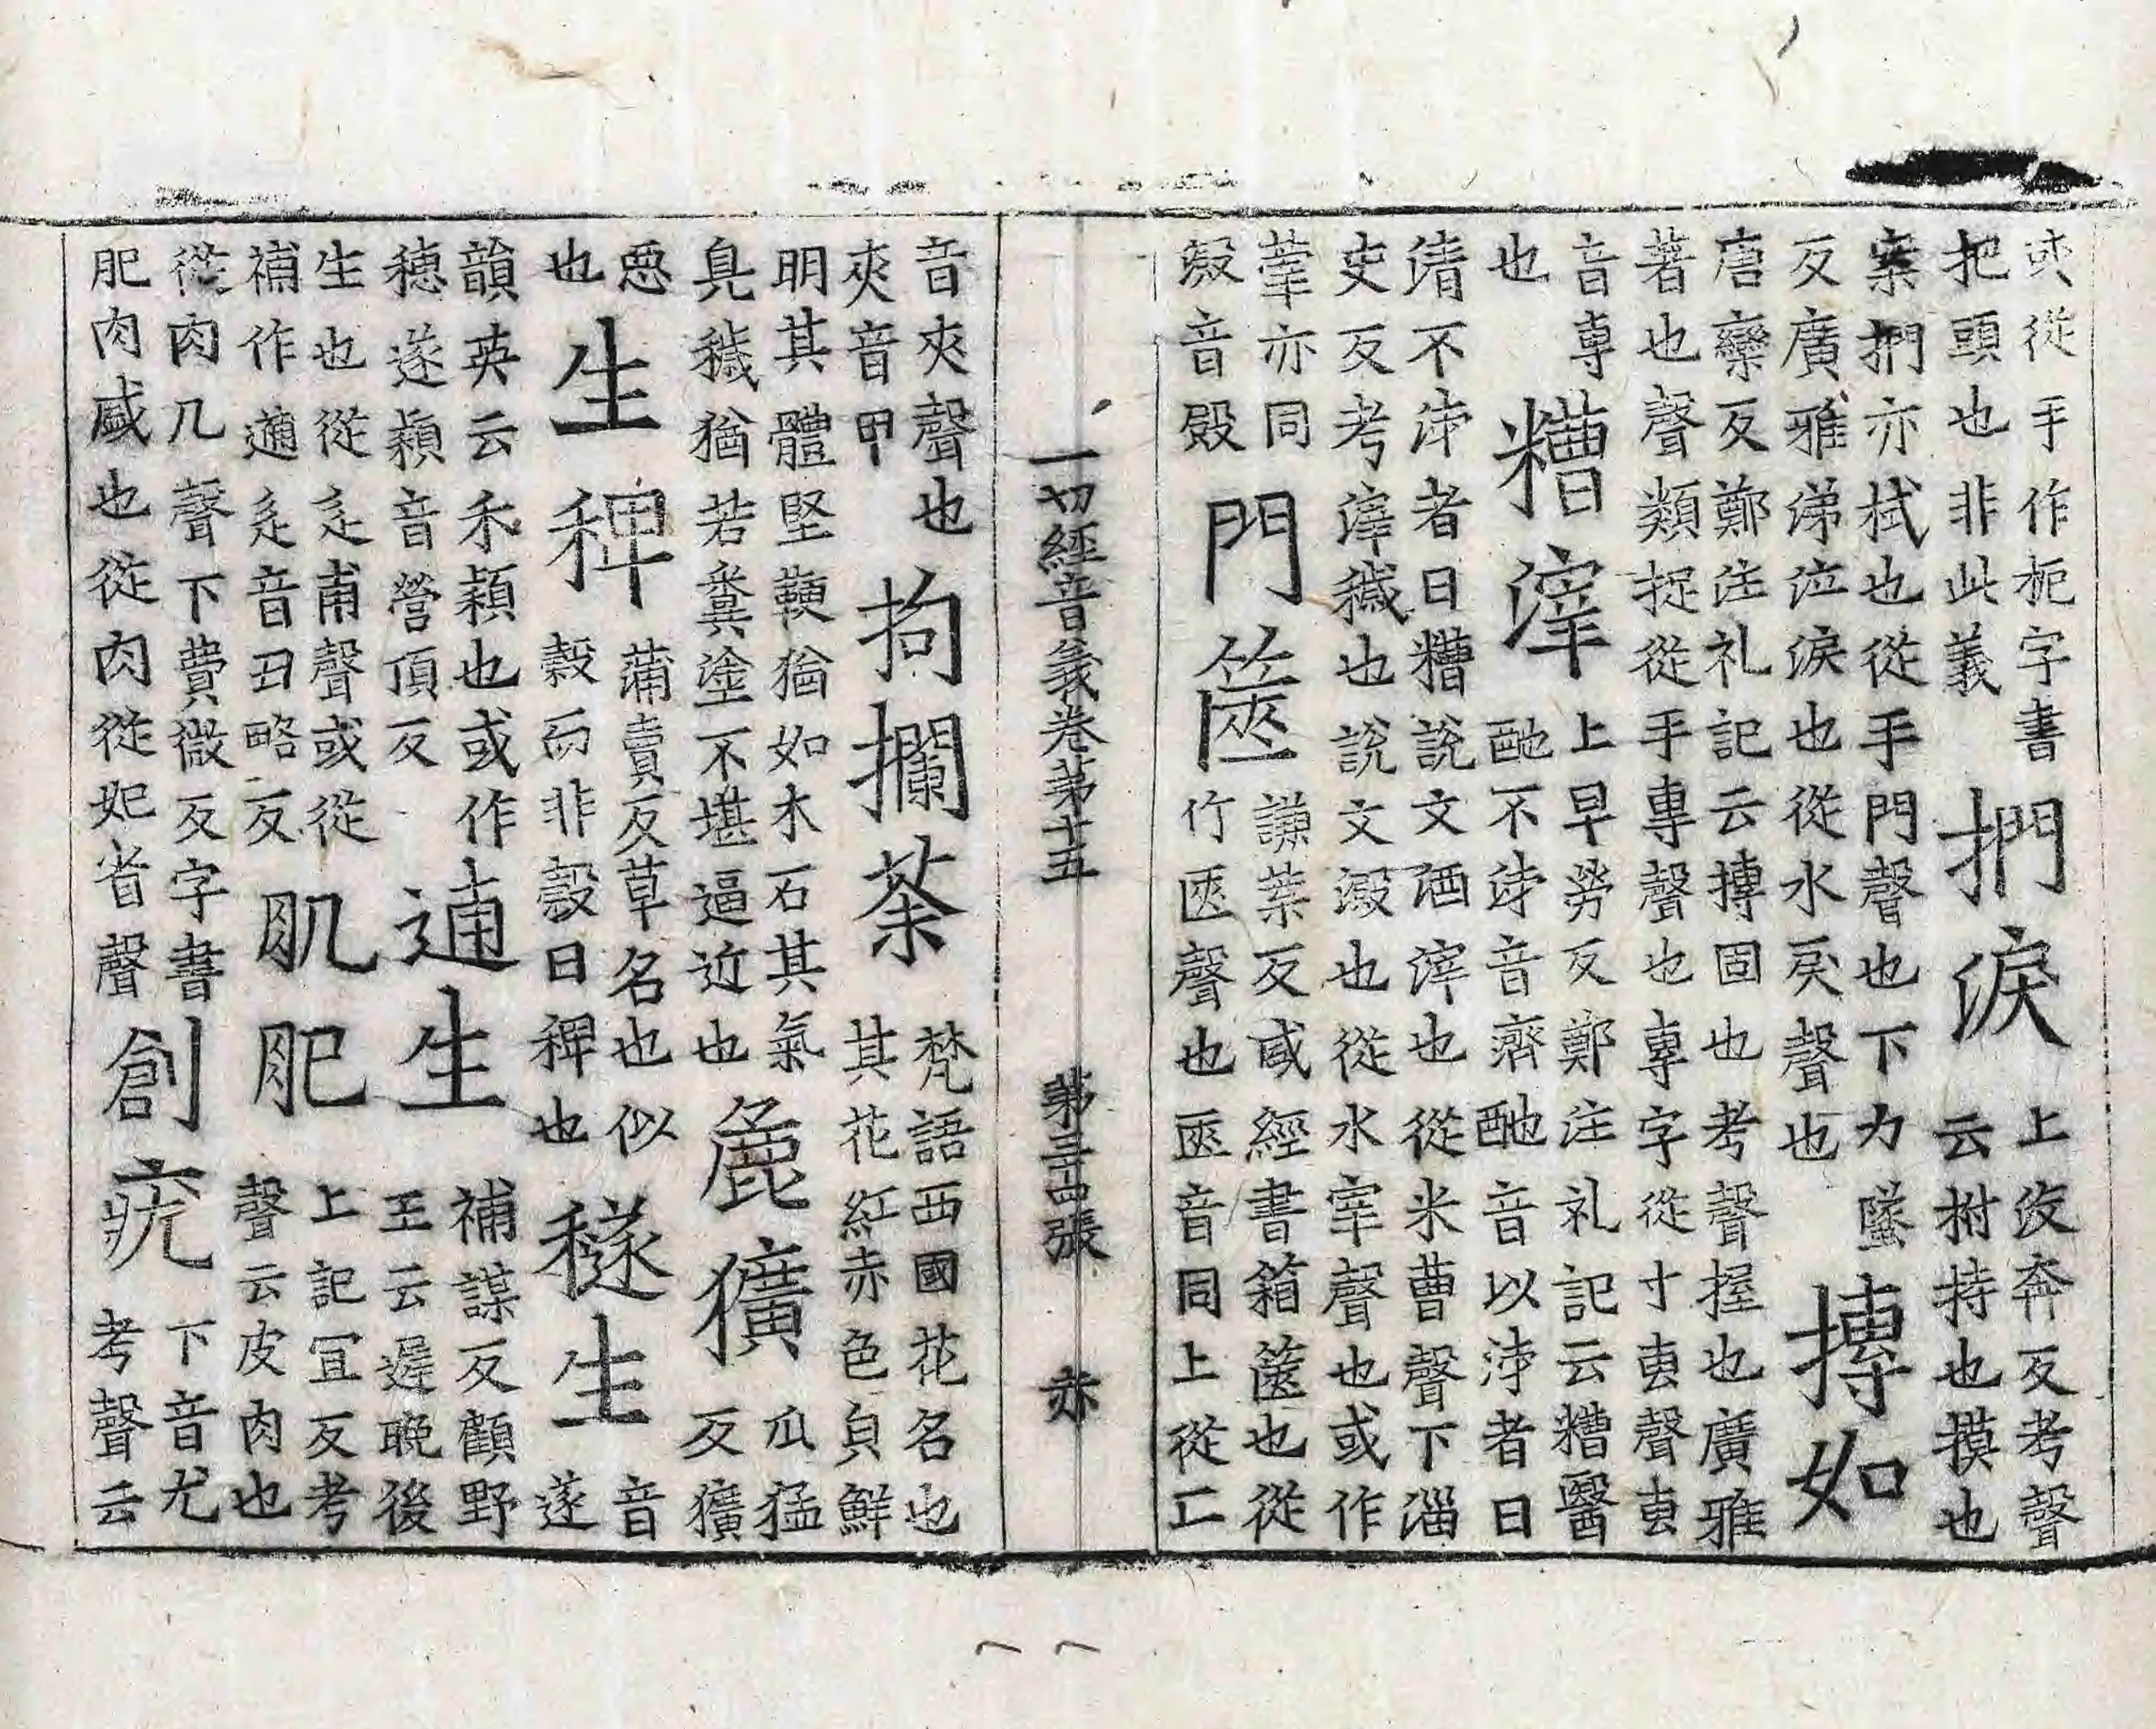 從手作扼字書
把頭也非此義
捫淚
上没奔反考聲
云拊持也摸也
案捫亦拭也從手門聲也下力墜
反廣雅涕泣淚也從水戾聲也
摶如
唐欒反鄭注礼記云摶固也考聲握也廣雅
著也聲類捉從手專聲也專字從寸叀聲叀
音專
也
糟滓
上早勞反鄭注礼記云糟醫
酏不泲音濟酏音以泲者曰
清不泲者曰糟說文酒滓也從米曹聲下淄
史反考滓穢也說文澱也從水宰聲也或作
亦同
澱音殿
門篋
謙葉反或經書箱篋也從
竹匧聲也匧音同上從匚
一切經音義卷第十五 第三十四張 赤
音夾聲也
夾音甲
拘攔荼
梵語西國花名也
其花紅赤色貟鮮
明其體堅鞕猶如木石其氣
臭穢猶若糞塗不堪逼近也
麁獷
瓜猛
反獷
惡
也
生稗
蒲賣反草名也似
穀而非穀曰稗也
穟生
音
遂
韻英云禾穎也或作
穗遂穎音營頂反
逋生
補謀反顧野
王云遲晚後
生也從辵甫聲或從
補作逋辵音丑略反
肌肥
上記冝反考
聲云皮肉也
從肉几聲下費微反字書
肥肉盛也從肉從妃省聲
創疣
下音尤
考聲云